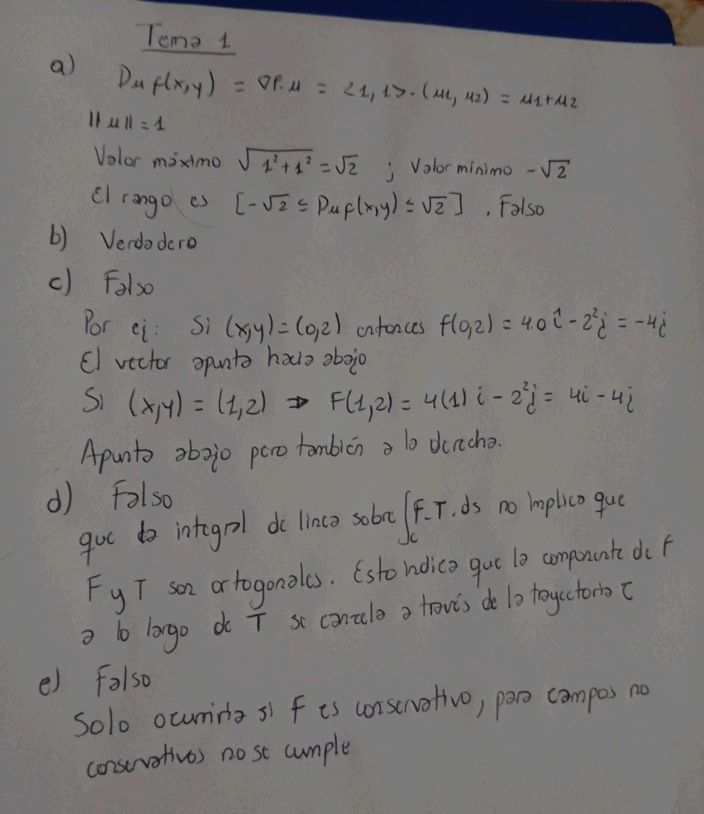 Tema 1
a) Du f(x,y) = ∇f.u = <1,1>.(u1, u2) = u1+u2
||u||=1
Valor máximo √1²+1² = √2 ; Valor mínimo -√2
El rango es [-√2 ≤ Du f(x,y) ≤ √2] . Falso
b) Verdadero
c) Falso
Por ej: Si (x,y)=(0,2) entonces f(0,2) = 4.0 î - 2²j = -4j
El vector apunta hacia abajo
Si (x,y) = (1,2) ⇒ F(1,2) = 4(1) i - 2²j = 4i - 4j
Apunta abajo pero también a la derecha.
d) Falso
que la integral de linea sobre ∫c F.T.ds no implica que
F y T son ortogonales. Esto indica que la componente de F
a lo largo de T se cancela a través de la trayectoria C
e) Falso
Solo ocurriria si F es conservativo, para campos no
conservativos no se cumple